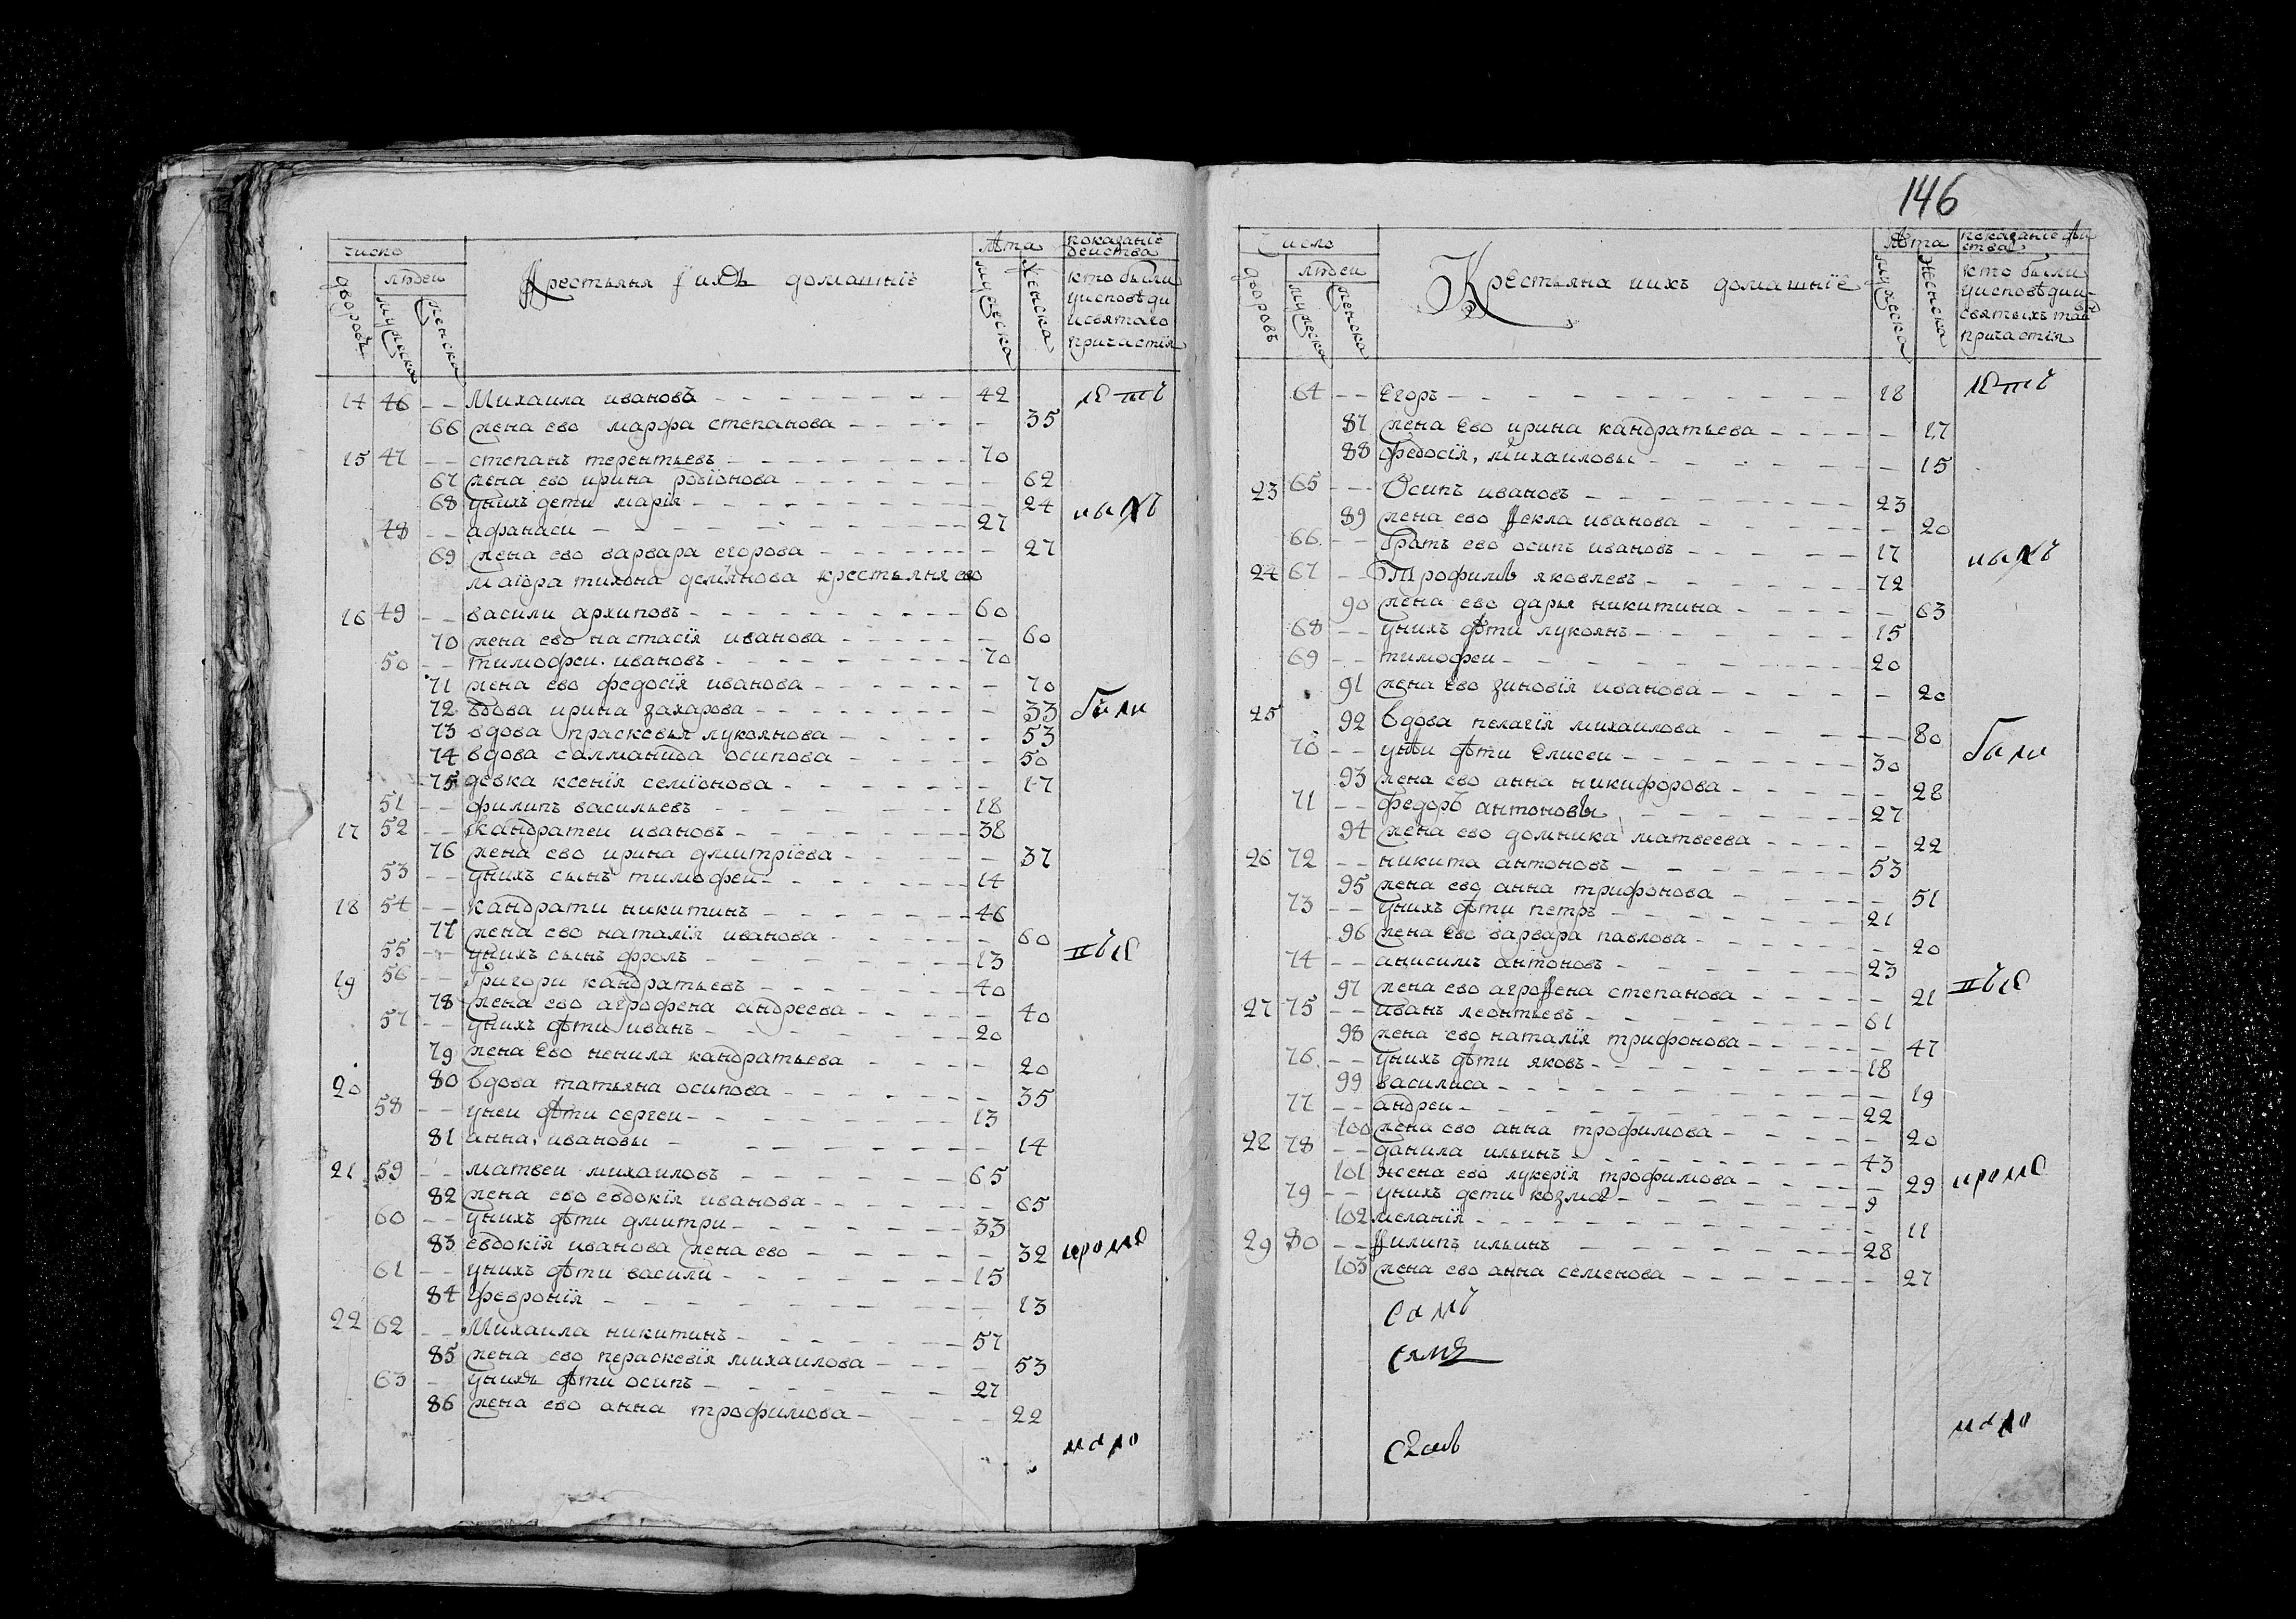 число
дворовъ
людеи
мужеска
женска
Крестьяня и ихъ домашніе
лѣта
мужеска
женска
показаніе
деиства
кто были
у исповѣди
и святаго
причастія
14 46 – – Михаила ивановъ – – – 42
66 жена ево марфа степанова – – – 35
15 47 – – степанъ терентьевъ – – – 70
67 жена ево ирина родіонова – – – 62
68 у нихъ дети марія – – – 24
48 – – афанаси – – – 27
69 жена ево варвара егорова – – – 27
маіора тихона демянова крестьяня ево
16 49 – – васили архиповъ – – – 60
70 жена ево настасія иванова – – – 60
50 – – тимофеи ивановъ – – – 70
71 жена ево федосія иванова – – – 70
72 вдова ирина захарова – – – 33
были
73 вдова прасковья лукоянова – – – 53
74 вдова салманида осипова – – – 50
75 девка ксенія семіонова – – – 17
51 – – филипъ васильевъ – – – 18
17 52 – – кандратеи ивановъ – – – 38
76 жена ево ирина дмитріева – – – 37
53 – – у нихъ сынъ тимофеи – – – 14
18 54 – – кандрати никитинъ – – – 46
77 жена ево наталія иванова – – – 60
55 – – у нихъ сынъ фролъ – – – 13
19 56 – – Григори кандратьевъ – – – 40
78 жена ево агрофена андреева – – – 40
57 – – у нихъ дѣти иванъ – – – 20
79 жена ево ненила кандратьева – – – 20
20 80 вдова татьяна осипова – – – 35
58 – – у неи дѣти сергеи – – – 13
81 анна, ивановы – – – 14
21 59 – – матвеи михаиловъ – – – 65
82 жена ево евдокія иванова – – – 65
60 – – у нихъ дѣти дмитри – – – 33
83 евдокія иванова жена ево – – – 32
61 – – у нихъ дѣти васили – – – 15
84 февронія – – – 13
22 62 – – Михаила никитинъ – – – 57
85 жена ево пераскевія михаилова – – – 53
63 – у нихъ дѣти осипъ – – – 27
86 жена ево анна трофимова – – – 22
146
Число
дворовъ
людеи
мужеска
женска
Крестьяна и ихъ домашніе
лѣта
мужеска
женска
показаніе дѣи
ства
кто были
у исповѣди и
святыхъ таи
причастія
64 – – Егоръ – – – 18
87 жена Ево ирина кандратьева – – – 17
88 федосія, михаиловы – – – 15
23 65 – – Осипъ ивановъ – – – 23
89 жена ево фекла иванова – – – 20
66 – – братъ ево осипъ ивановъ – – – 17
24 67 – – Трофимъ яковлевъ – – – 72
90 жена ево дарья никитина – – – 63
68 – – у нихъ дѣти лукоянъ – – – 15
69 – – тимофеи – – – 20
91 жена ево зиновія иванова – – – 20
25 92 вдова пелагія михаилова – – – 80
70 – – у неи дѣти Елисеи – – – 30
были
93 жена ево анна никифорова – – – 28
71 – – федоръ антоновы – – – 27
94 жена ево домника матвеева – – – 22
26 72 – – никита антоновъ – – – 53
95 жена ево анна трифонова – – – 51
73 – – у нихъ дѣти петръ – – – 21
96 жена Ево варвара павлова – – – 20
74 – – анисимъ антоновъ – – – 23
97 жена ево агрофена степанова – – – 21
27 75 – – иванъ леонтьевъ – – – 61
98 жена ево наталія трифонова – – – 47
76 – – у нихъ дѣти яковъ – – – 18
99 василиса – – – 19
77 – – андреи – – – 22
100 жена ево анна трофимова – – – 20
28 78 – – данила ильинъ – – – 43
101 жена ево лукерія трофимова – – – 29
79 – – у нихъ дети козма – – – 9
102 меланія – – – 11
29 80 – – филипъ ильинъ – – – 28
103 жена ево анна семенова – – – 27